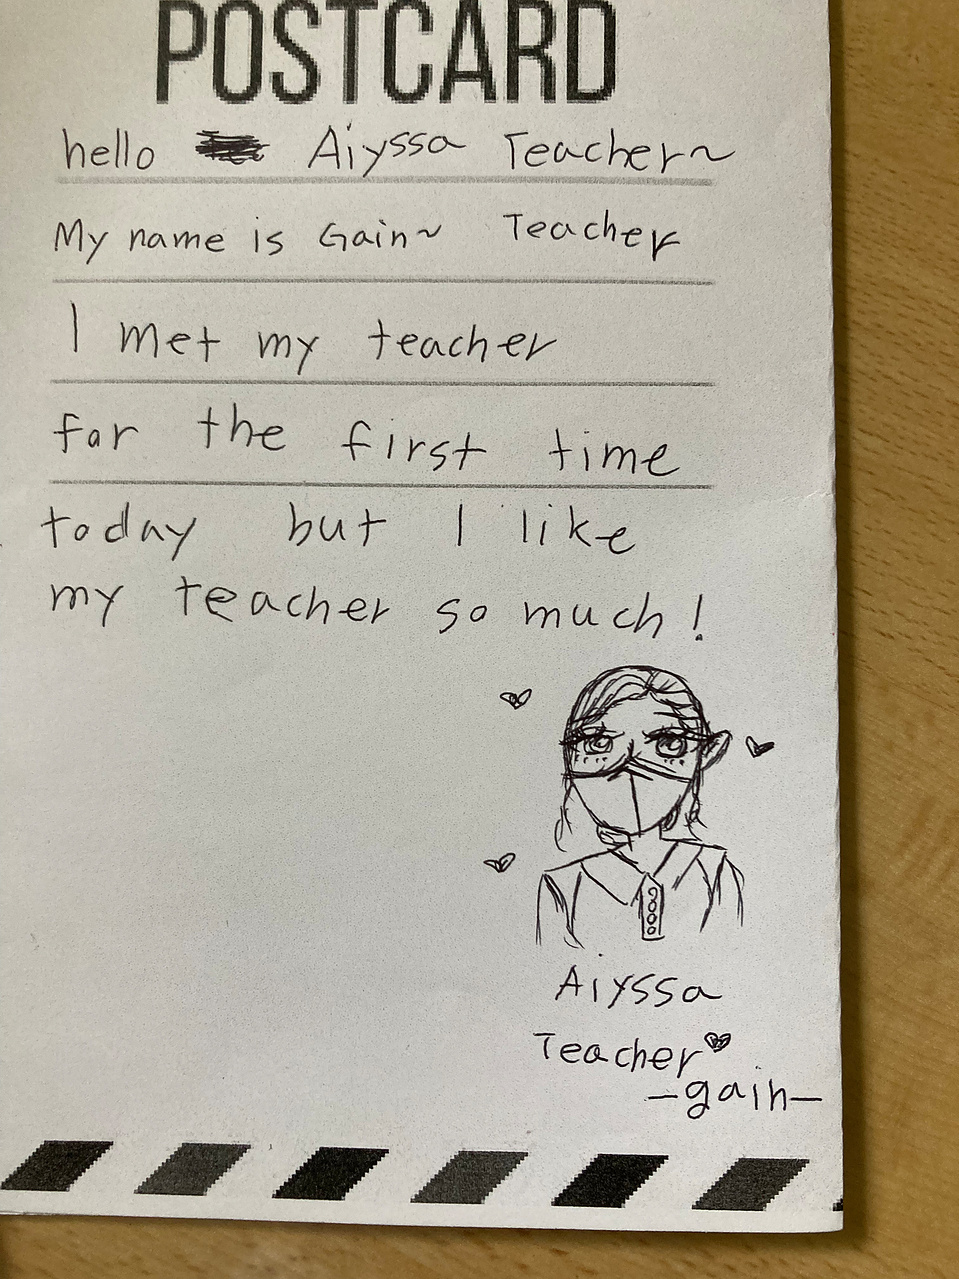 POSTCARD
hello Aiyssa Teacher~
My name is Gain~ Teacher
I met my teacher
for the first time
today but I like
my teacher so much!
Aiyssa
Teacher
-gain-